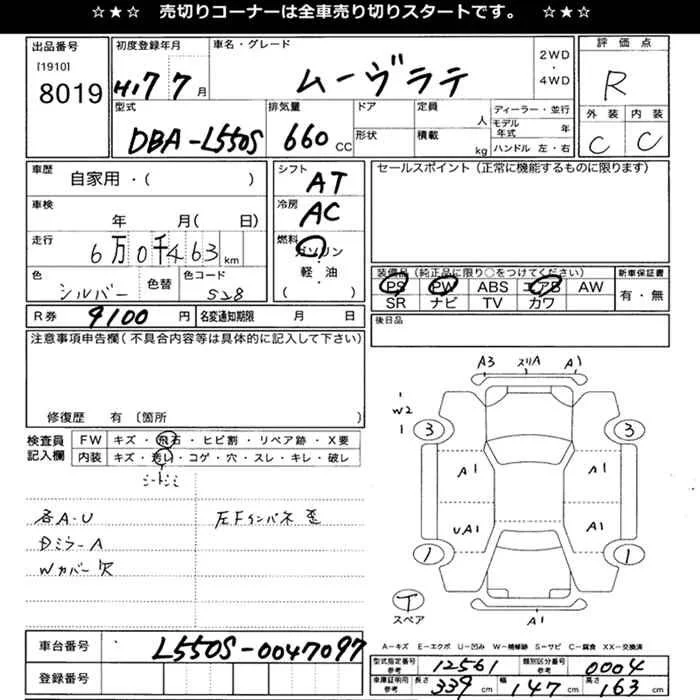 ☆★☆ 売切りコーナーは全車売り切りスタートです。 ☆★☆
出品番号 初度登録年月 車名・グレード 評価点
[1910] 2WD
8019 H17 7月 ムーヴラテ ・ R
4WD
型式 排気量 ドア 定員 ディーラー・並行 外装 内装
DBA-L550S 660CC 人 モデル年式 年 C C
形状 積載 kg ハンドル 左・右
車歴 シフト セールスポイント (正常に機能するものに限ります)
自家用・( ) AT
車検 冷房
年 月( 日) AC
走行 燃料
6万0千463km ガソリン
・
色 色替 色コード 軽・油 装備品 (純正品に限り○をつけてください) 新車保証書
シルバー S28 ( ) PS PW ABS エアB AW 有・無
SR ナビ TV カワ
R券 9100円 名変通知期限 月 日 後日品
注意事項申告欄 (不具合内容等は具体的に記入して下さい)
A3 スリA A1
W2
3 3
修復歴 有 〔箇所 )
検査員 FW キズ・飛石・ヒビ割・リペア跡・X要
記入欄 内装 キズ・汚レ・コゲ・穴・スレ・キレ・破レ
シートシミ
A1 A1
各A-U 左Fインパネ歪
Dミラ-A UA1 A1
Wカバー欠
1 1
T
スペア
A1
車台番号 L550S-0047097
A−キズ E−エクボ U−凹み W−補修跡 S−サビ C−腐食 XX−交換済
型式指定番号 参考 12561 類別区分番号 参考 0004
登録番号 車庫証明用 参考 長さ 339cm 幅 147cm 高さ 163cm